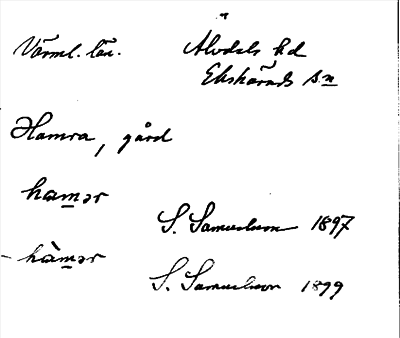 Värml. län. Älvdals hd
Ekshärads sn
Hamra, gård
hamər
S. Samuelsson 1897
hàmər
S. Samuelsson 1899